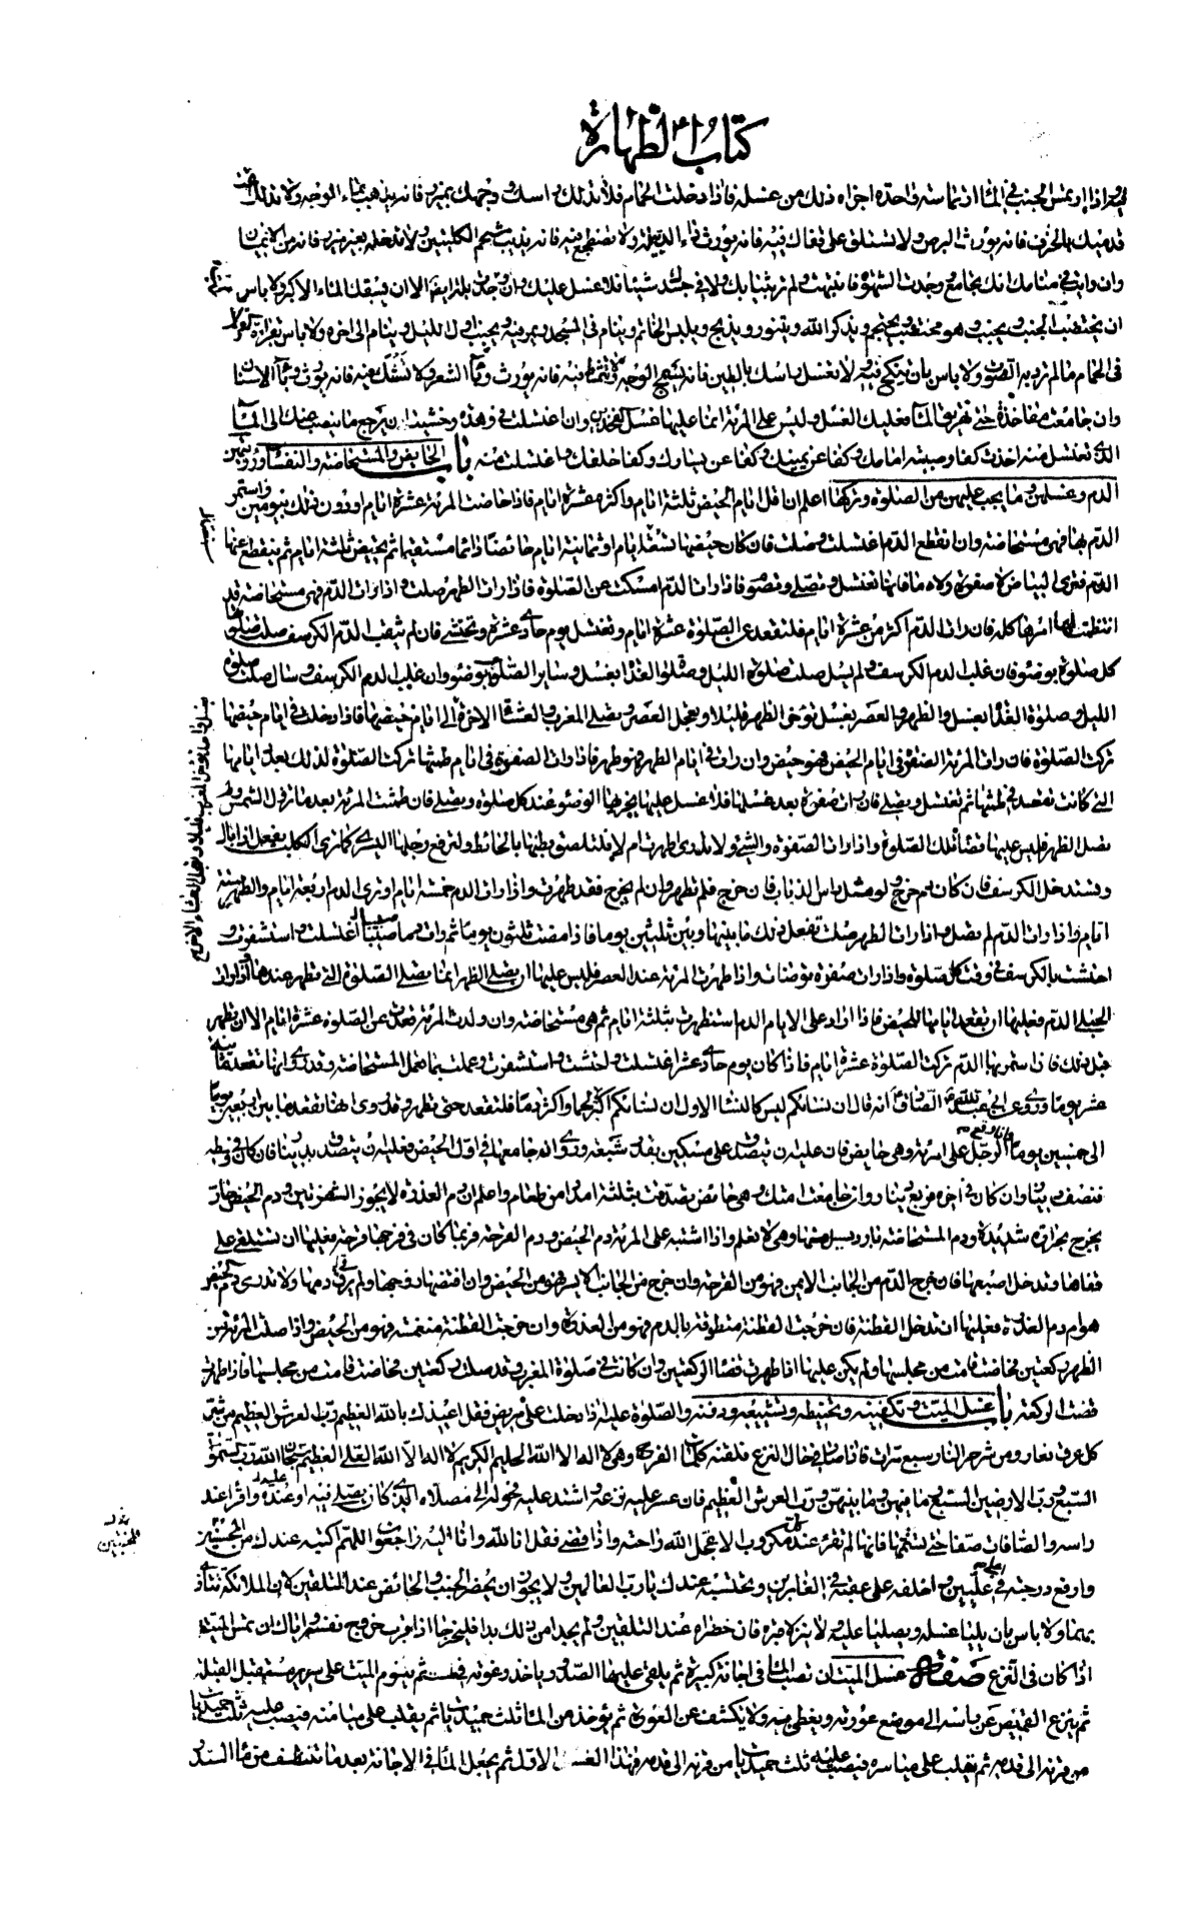 كتاب الطهارة
اذا ارتمس الجنب في الماء ارتماسة واحدة اجزاه ذلك من غسله فاذا دخلت الحمام فلا تدلك راسك ووجهك بميزر فانه يذهب بماء الوجه ولا تدلك تحت
قدميك بالخزف فانه يورث البرص ولا تستلق على قفاك فيه فانه يورث داء الدبيلة ولا تضطجع فيه فانه يذيب شحم الكليتين ولا تدخله بغير ميزر فانه من الايمان
وان رايت في منامك انك تجامع وجدت الشهوة فانتبهت ولم تر بثيابك ولا في جسدك شيئا فلا غسل عليك وان وجدت بلة ايضا الا ان يسبقك الماء الاكبر ولا باس
ان يختضب الجنب ويجنب وهو مختضب ويحتجم ويذكر الله ويتنور ويذبح ويلبس الخاتم وينام في المسجد ويمر فيه ويجنب اول الليل وينام الى اخره ولا باس بقراءة القرآن
في الحمام ما لم ترد به الصوت ولا باس بان تنكح فيه ولا تغسل راسك بالطين فانه يسمج الوجه ولا تتمشط فيه فانه يورث وباء الشعر ولا تستك فيه فانه يورث وباء الاسنان
وان جامعت مفاخذة حتى تهريق الماء فعليك الغسل وليس على المرءة انما عليها غسل الفخذين وان اغتسلت في وهدة وخشيت ان يرجع ما ينصب عنك الى الماء
الذي تغتسل منه اخذت كفا وصببته امامك وكفا عن يمينك وكفا عن يسارك وكفا خلفك واغتسلت منه باب الحايض والمستحاضة والنفساء ورؤيتهن
الدم وغسلهن وما يجب عليهن من الصلوة وتركها اعلم ان اقل ايام الحيض ثلثة ايام واكثره عشرة ايام فاذا حاضت المرئة عشرة ايام او دون ذلك بيومين واستمر
الدم بها فهي مستحاضة وان انقطع الدم اغتسلت وصلت فان كان حيضها تسعة ايام او ثمانية ايام حائضا دائما مستقيما ثم تحيض ثلثة ايام ثم ينقطع عنها
الدم فترى البياض لا صفرة ولا دما فانها تغتسل وتصلي وتصوم فاذا رات الدم امسكت عن الصلوة فاذا رات الطهر صلت واذا رات الدم فهي مستحاضة قد
انتظمت لها امرها كله فان رات الدم اكثر من عشرة ايام فلتقعد عن الصلوة عشرة ايام وتغتسل يوم حادي عشرة وتحتشي فان لم يثقب الدم الكرسف صلت صلوتها
كل صلوة بوضوء فان غلب الدم الكرسف ولم يسل صلت صلوة الليل وصلوة الغداة بغسل وساير الصلوة بوضوء وان غلب الدم الكرسف وسال صلت صلوة
الليل وصلوة الغداة بغسل والظهر والعصر بغسل تؤخر الظهر قليلا وتعجل العصر وتصلي المغرب والعشاء الاخرة الى ايام حيضها فاذا دخلت في ايام حيضها
تركت الصلوة فان رات المرئة الصفرة في ايام الحيض فهو حيض وان رات في ايام الطهر فهو طهر فاذا رات الصفرة في ايام طمثها تركت الصلوة لذلك بعدد ايامها
التي كانت تقعد في طمثها ثم تغتسل وتصلي فان رات صفرة بعد غسلها فلا غسل عليها يجزيها الوضوء عند كل صلوة وتصلي فان طمثت المرئة بعد ما تزول الشمس ولم
تصل الظهر فليس عليها قضاء تلك الصلوة واذا رات الصفرة والشيء ولا تدري اطهرت ام لا فلتلصق بطنها بالحائط ولترفع رجلها اليسرى كما ترى الكلب يفعل اذا بال
وتستدخل الكرسف فان كان دم خرج ولو مثل راس الذباب فان خرج فلم تطهر وان لم يخرج فقد طهرت واذا رات الدم خمسة ايام او ترى الدم اربعة ايام والطهر ستة
ايام واذا رات الدم لم تصل واذا رات الطهر صلت تفعل ذلك ما بينها وبين ثلثين يوما فاذا مضت ثلثون يوما ثم رات دما صبيبا اغتسلت واستثفرت و
احتشت بالكرسف في وقت كل صلوة واذا رات صفرة توضات واذا طهرت المرئة عند العصر فليس عليها ان تصلي الظهر انما تصلي الصلوة التي تطهر عندها واذا رات
الحبلى الدم فعليها ان تقعد ايامها للحيض فاذا زاد على الايام الدم استظهرت بثلثة ايام ثم هي مستحاضة وان ولدت المرئة قعدت عن الصلوة عشرة ايام الا ان تطهر
قبل ذلك فاذا استمر بها الدم تركت الصلوة عشرة ايام فاذا كان يوم حادي عشر اغتسلت واحتشت واستثفرت وعملت بما تعمل المستحاضة وقد روي انها تقعد ثمانية
عشر يوما وروي عن ابي عبد الله الصادق انه قال ان نساءكم ليس كالنساء الاول ان نساءكم اكبر لحما واكثر دما فلتقعد حتى تطهر وقد روي انها تقعد ما بين اربعين يوما
الى خمسين يوما الرجل على امرئته وهي حايض فان عليه ان يتصدق على مسكين بقدر شبعه وروي انه جامعها في اول الحيض فعليه ان يتصدق بدينار فان كان في وسطه
فنصف دينار وان كان في اخره فربع دينار وان جامعت امتك وهي حائض تصدقت بثلثة امداد من طعام واعلم ان دم العذرة لا يجوز الشفرتين ودم الحيض حار
يخرج بحرارة شديدة ودم المستحاضة بارد يسيل منها وهي لا تعلم واذا اشتبه على المرئة دم الحيض ودم القرحة فربما كان في فرجها قرحة فعليها ان تستلقي على
قفاها وتدخل اصبعها فان خرج الدم من الجانب الايمن فهو من القرحة وان خرج من الجانب الايسر فهو من الحيض وان افتضها زوجها ولم يرق دمها ولا تدري دم الحيض
هو ام دم العذرة فعليها ان تدخل القطنة فان خرجت القطنة مطوقة بالدم فهو من العذرة وان خرجت القطنة منغمسة فهو من الحيض واذا صلت المرئة من
الظهر ركعتين فحاضت قامت من مجلسها ولم يكن عليها اذا طهرت قضاء الركعتين وان كانت في صلوة المغرب وقد صلت ركعتين فحاضت قامت من مجلسها فاذا طهرت
قضت الركعة باب غسل الميت وتكفينه وتحنيطه وتشييعه ودفنه والصلوة عليه اذا دخلت على مريض فقل اعيذك بالله العظيم رب العرش العظيم من شر
كل عرق نعار ومن شر حر النار سبع مرات فاذا صار في حال النزع فلقنه كلمات الفرج وهي لا اله الا الله الحليم الكريم لا اله الا الله العلي العظيم سبحان الله رب السموات
السبع ورب الارضين السبع وما فيهن وما بينهن ورب العرش العظيم فان عسر عليه نزعه واشتد عليه فحوله الى مصلاه الذي كان يصلي فيه او عليه واقرا عند
راسه والصافات صفا حتى تستتمها فانها لم تقرء عند مكروب الا عجل الله راحته واذا قضى فقل انا لله وانا اليه راجعون اللهم اكتبه عندك من المحسنين
وارفع درجته في اعلى عليين واخلفه على عقبه في الغابرين ونحتسبه عندك يا رب العالمين ولا يجوز ان يحضر الجنب والحائض عند التلقين لان الملائكة تتاذى
بهما ولا باس بان يليا غسله ويصليا عليه ولا ينزلا قبره فان حضراه عند التلقين ولم يجدا من ذلك بدا فليخرجا اذا قرب خروج نفسه واياك ان تمس الميت
اذا كان في النزع صفة غسل الميت ان تصب الماء في اجانة كبيرة ثم يلقى عليها السدر
ثم ينزع القميص عن راسه الى موضع عورته ويغطى به ولا يكشف عن العورة ثم يؤخذ من الماء ثلث حميديات ثم يقلب على ميامنه فيصب عليه ثلث حميديات
من قرنه الى قدمه ثم يقلب على مياسره فيصب عليه ثلث حميديات من قرنه الى قدمه فهذا الغسل الاول ثم يجعل الماء في الاجانة بعد ما تنظف من ماء السدر